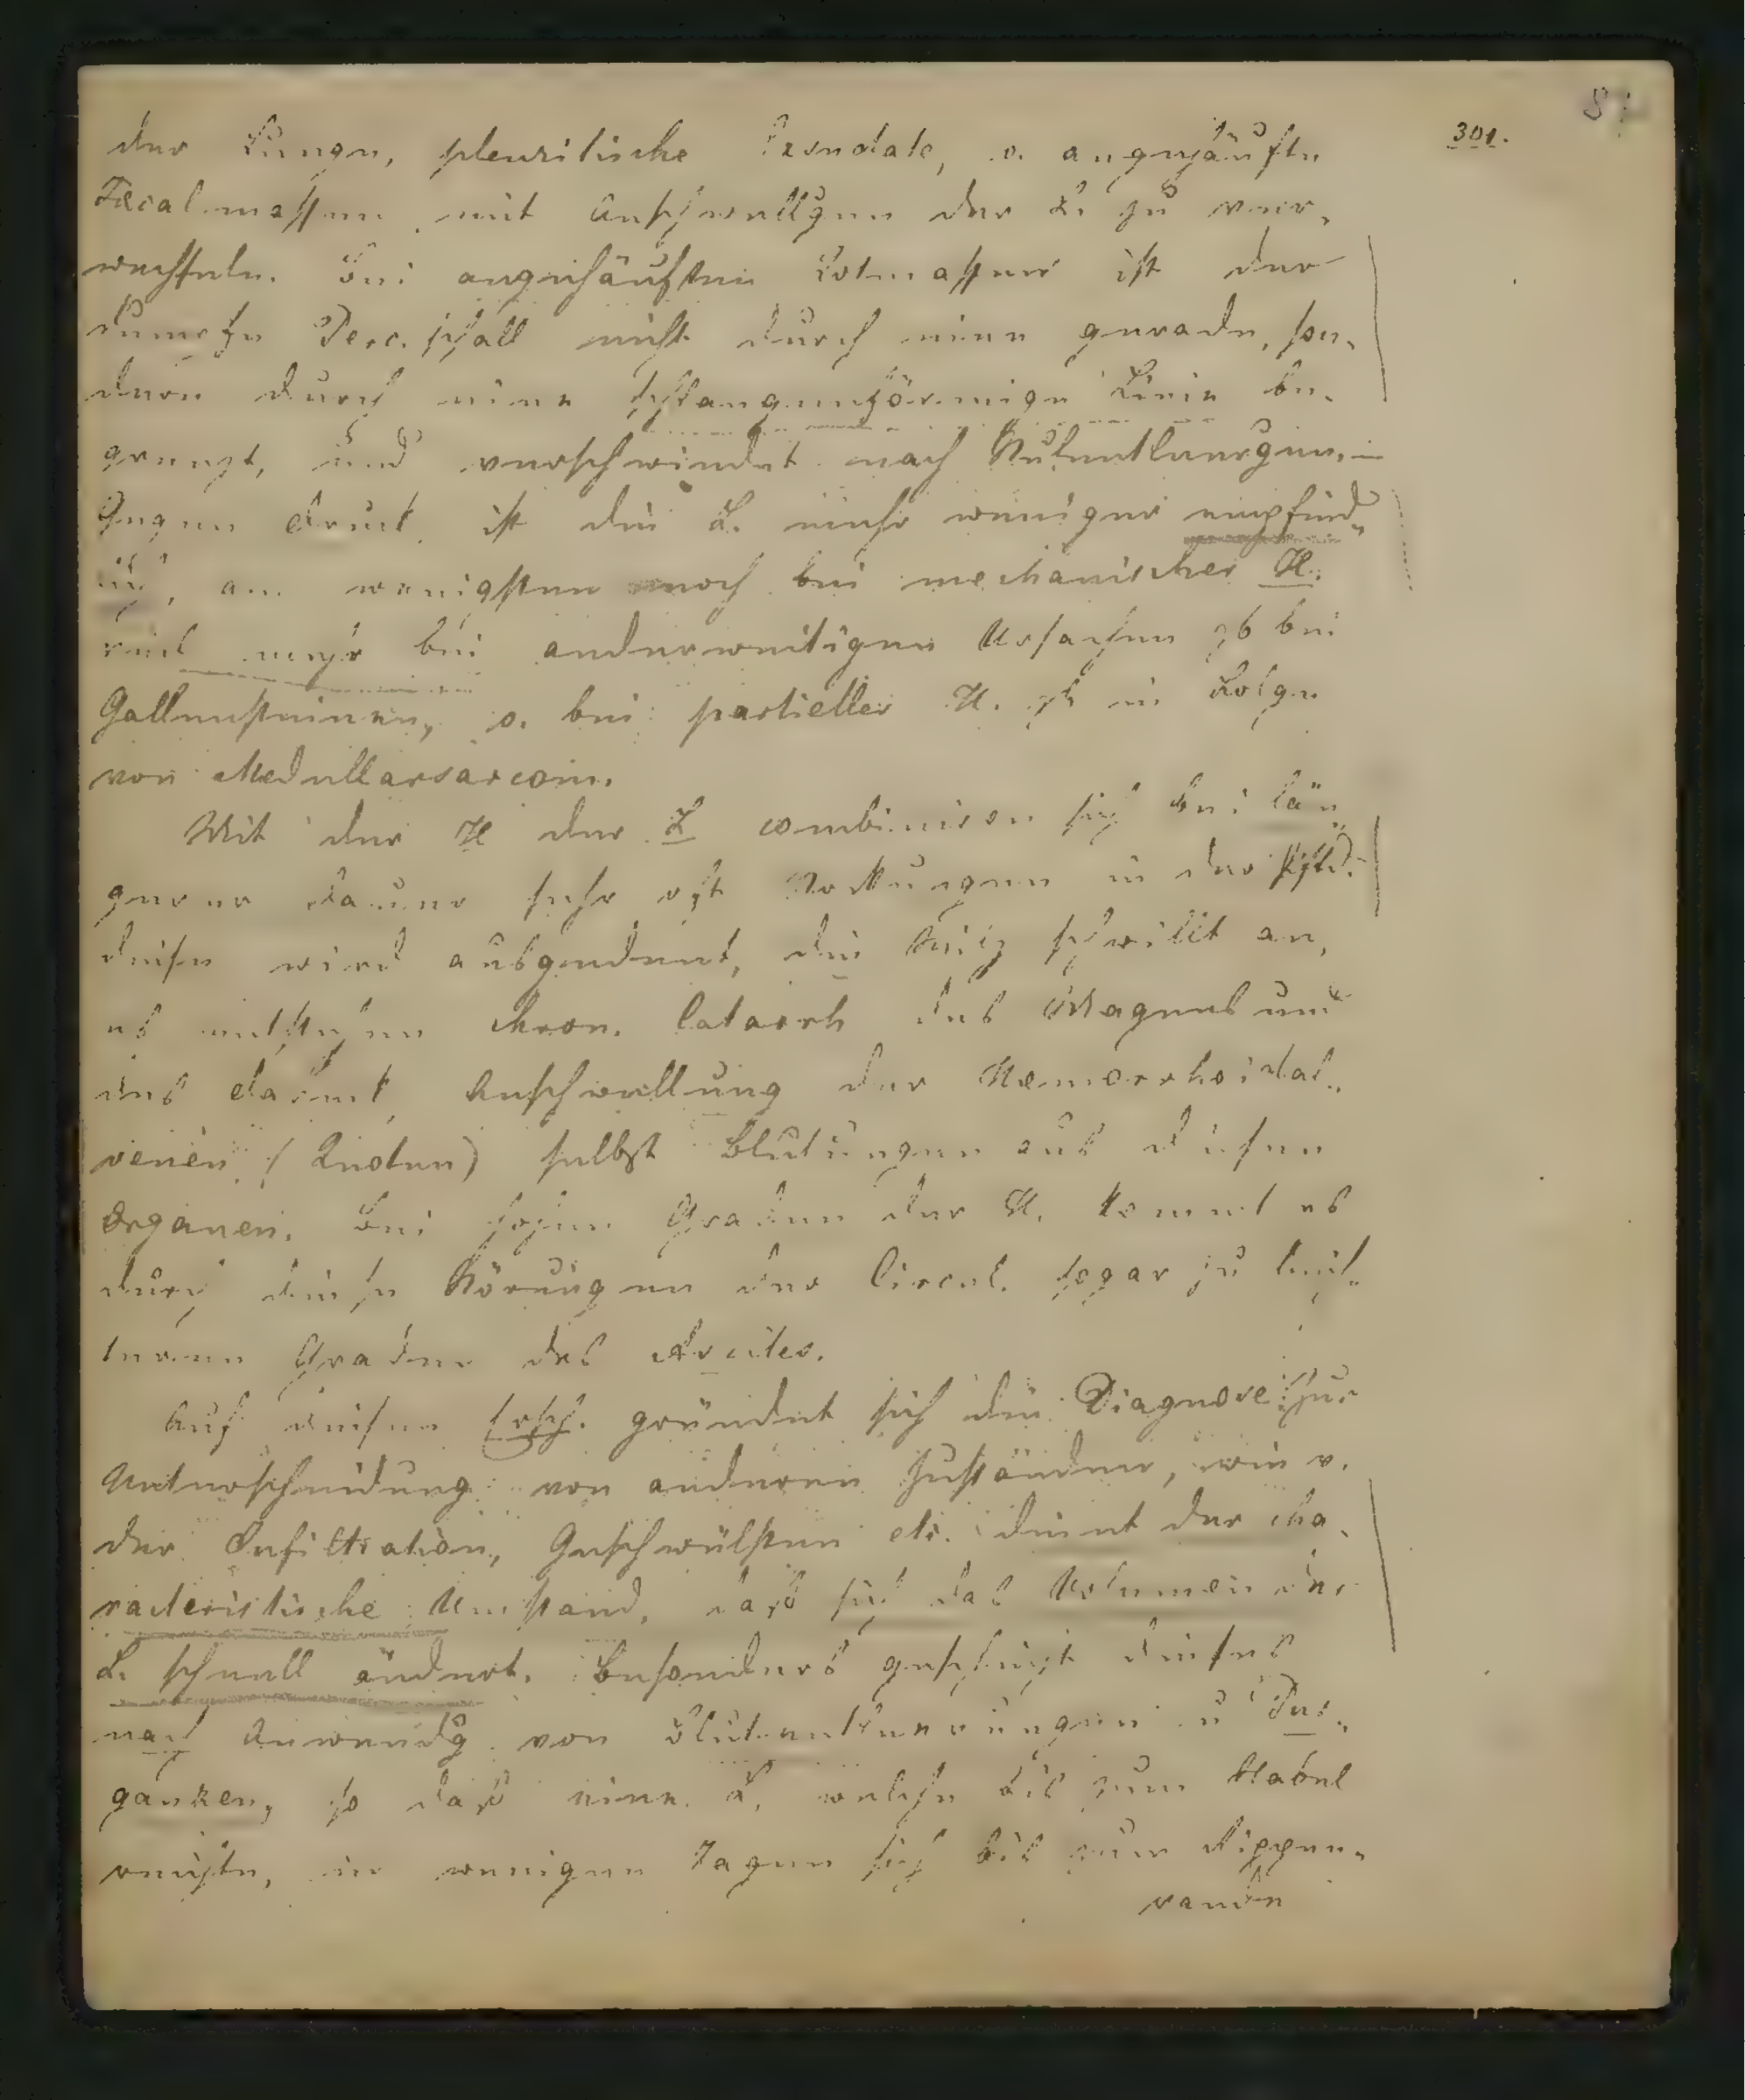 301.
der Lunge, pleuritische Exsudate, o. angehäufte
Fæcalmassen mit Anschwellgen der L. zu ver-
wechseln. Bei angehäuften Kotmassen ist der
dumpfe Perc. schall nicht durch eine gerade, son-
dern durch eine schlangenförmige Linie be-
grenzt, und verschwindet nach Stulentleergen. –
Gegen Druck ist die L. mehr weniger empfind-
lich, am wenigsten noch bei mechanischer H.
viel mehr bei anderweitigen Ursachen zb bei
Gallensteinen, o. bei partieller H. zb in Folge
von Medullarsarcom.
Mit der H der L combiniren sich bei län-
gerer Dauer sehr oft Stockungen in der Pftd.
diese wird ausgedent, die Milz schwillt an,
es entstehen chron. Catarrh des Magens und
des Darmes, Anschwellung der Hæmorrhoidal-
venen (Knoten) selbst Blutungen aus diesen
Organen. Bei hohen Graden der H. kommt es
durch diese Störungen der Circul. sogar zu leich-
teren Graden des Ascites.
Auf diesen Ersch. gründet sich die Diagnose. Zur
Unterscheidung von anderen Zuständen, wie v.
der Infiltration, Geschwülsten etc. dient der cha-
racteristische Umstand, daß sich das Volumen der
L. schnell ändert. Besonders geschieht dieses
nach Anwendg von Blutentleerungen u Pur-
ganzen, so daß eine L, welche bis zum Nabel
reichte, in wenigen Tagen sich bis zum Rippen-
rande